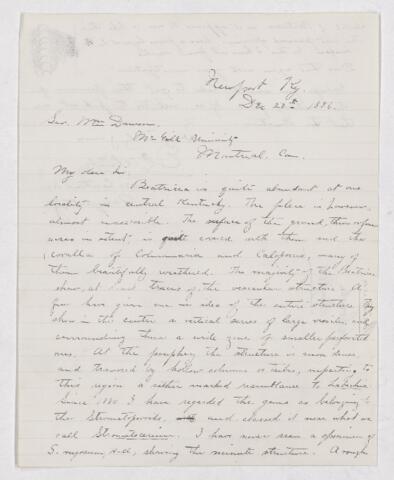 Newport Ky.
Dec 28th 1886.
Sir Wm Dawson
McGill University
Montreal, Can.
My dear Sir
Beatricea is quite abundant at one
locality in central Kentucky. The place is however
almost inaccessible. The surface of the ground, three or four
acres in extent, is quite covered with them and the
coralla of Columnaria and Calapoecia, many of
them beautifully weathered. The majority of the Beatricea
show, at least traces of the vesicular structure. A
few have given me an idea of the entire structure. They
show in the centre a vertical series of large vesicles, with
surrounding these a wide zone of smaller perforated
ones. At the periphery the structure is more dense,
and traversed by hollow columns or tubes, imparting to
this region a rather marked resemblance to Labechia
Since 1880 I have regarded the genus as belonging to
the Stromatoporoids, and classed it near what we
call Stromatocerium. I have never seen a specimen of
S. rugosum, Hall, showing the minute structure. A rough